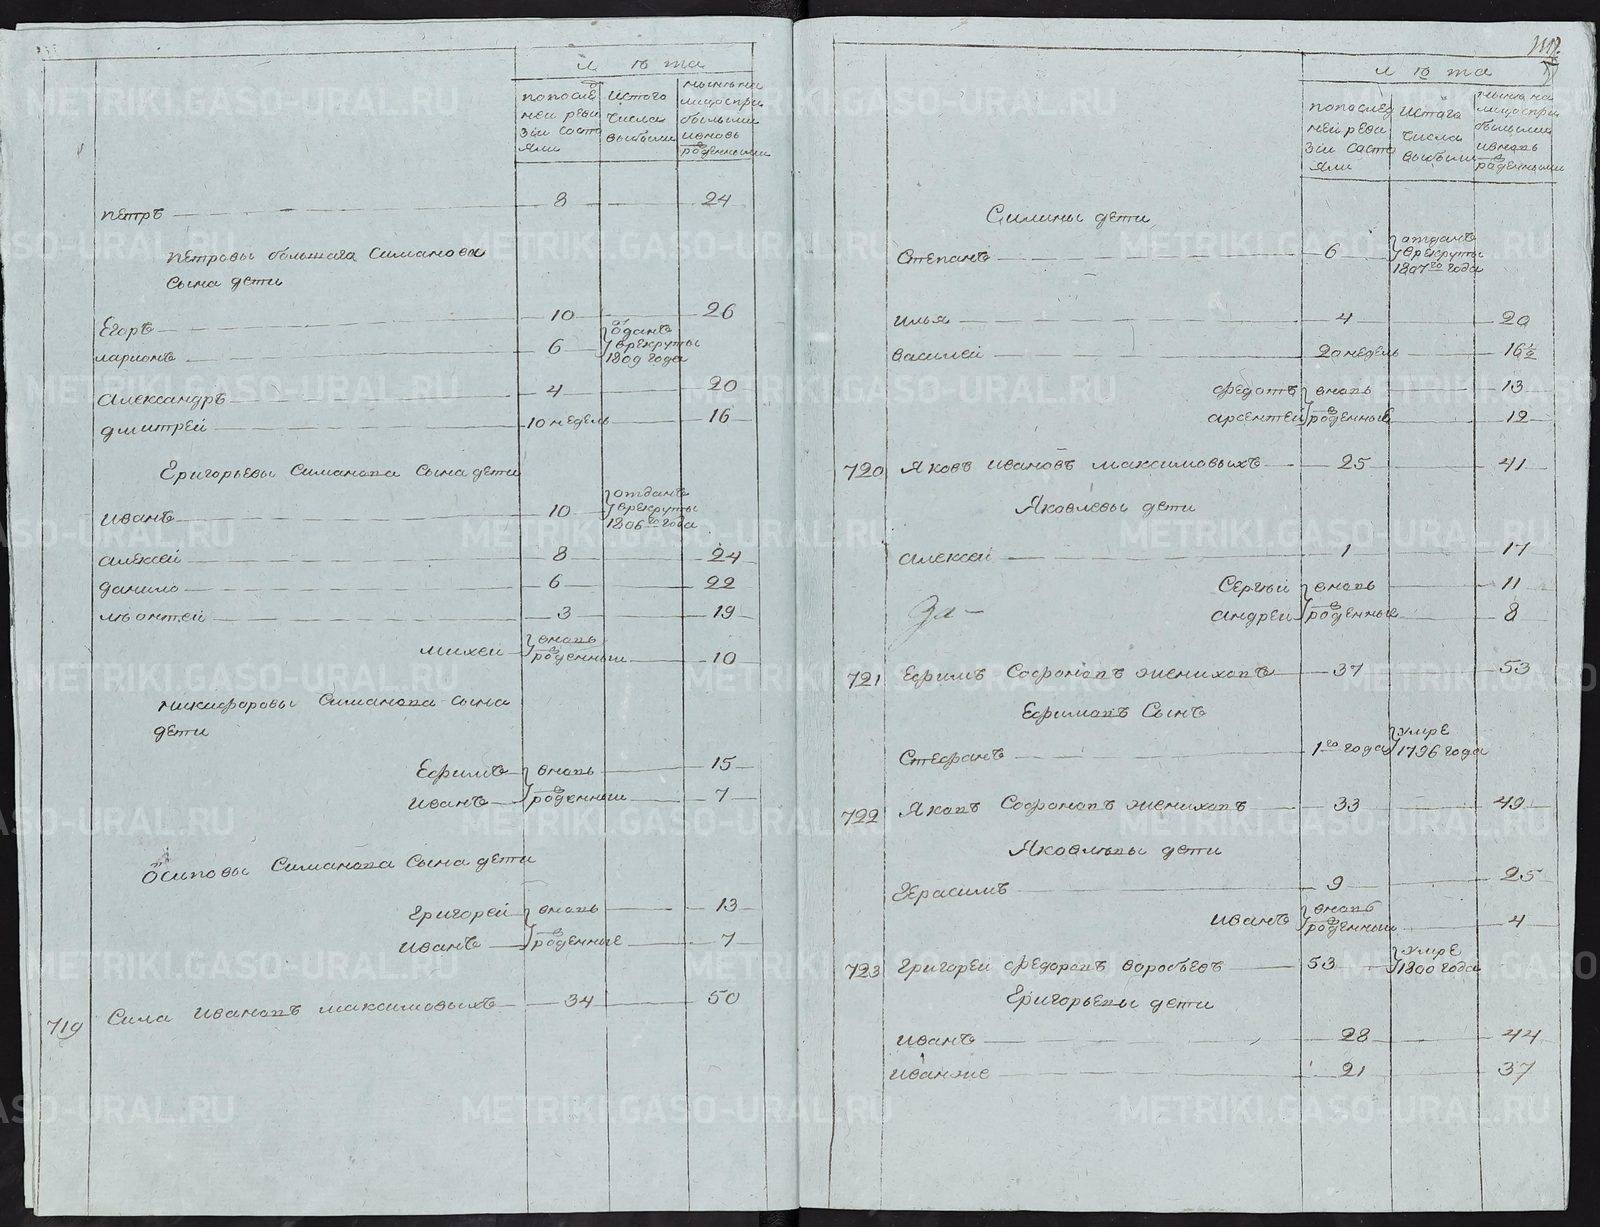 лѣта
попослѣд
ней реви
зіи состо
яли
Истого
числа
выбыли
нынѣ на
лицо спри
былыми
ивновь
рожденными
Петръ 8 24
Петровы большага Симанова
Сына дети
Егоръ 10 26
Ларионъ 6 Отданъ
врекруты
1809 года
Александръ 4 20
Дмитрей 10 недель 16
Григорьевы Симанова Сына дети
Иванъ 10 отданъ
врекруты
1806 го года
Алексей 8 24
Данило 6 22
Леонтей 3 19
Михей вновь
рожденный 10
Никифоровы Симанова Сына
дети
Ефимъ вновь 15
Иванъ рожденныи 7
Осиповы Симанова Сына дети
Григорей вновь 13
Иванъ рожденные 7
719 Сила Ивановъ Максимовыхъ 34 50
лѣта
попослед
ней реви
зіи состо
яли
Истого
числа
выбыли
нынѣ на
лицо спри
былыми
ивновь
рожденными
Силины дети
Степанъ 6 отданъ
врекруты
1807 го года
Илья 4 20
Василей 20 недель 16 1/2
Федотъ вновь 13
Арсентей рожденные 12
720 Яковъ Ивановъ Максимовыхъ 25 41
Яковлевы дети
Алексей 1 17
Сергѣй вновь 11
Андрей рожденные 8
721 Ефимъ Софоновъ Жениховъ 37 53
Ефимовъ Сынъ
Стефанъ 1 го года умре
1796 года
722 Яковъ Софоновъ Жениховъ 33 49
Яковлевы дети
Герасимъ 9 25
Иванъ вновь
рожденный 4
723 Григореи Федоровъ Воробьевъ 53 умре
1800 года
Григорьевы дети
Иванъ 28 44
Иванже 21 37
METRIKI.GASO-URAL.RU